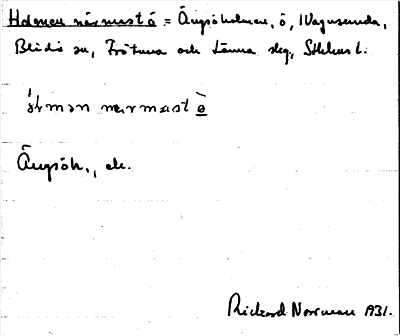 Holmen närmast ö = Ängsöholmen, ö, i Vagnsunda,
Blidö sn, Frötuna och Länna skg, Sthlms l.
Ängsöh., ek.
Rickard Norrman 1931.